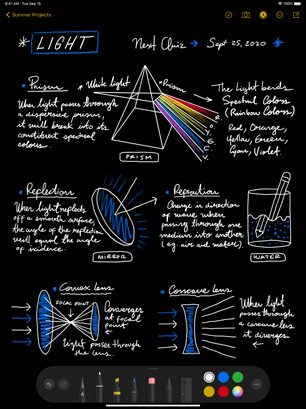 9:41 AM Tue Sep 15
100%
Summer Projects
* LIGHT
Next Quiz → Sept 25, 2020 *
• Prism
White light
Prism
When light passes through
a dispersive prism,
it will break into its
constituent spectral
colours.
The light bends
Spectral Colors
(Rainbow Colors)
Red, Orange,
Yellow, Green,
Cyan, Violet
R.
O.
Y.
G.
C.
V.
PRISM
• Reflection
When light reflects
off a smooth surface,
the angle of the reflection
will equal the angle
of incidence.
MIRROR
• Refraction
Change in direction
of wave when
passing through one
medium into another
(eg: air and water).
WATER
• Convex lens
FOCAL POINT
Converges
at focal
point
Light passes through
the lens.
• Concave lens
When light
passes through
a concave lens
it diverges.